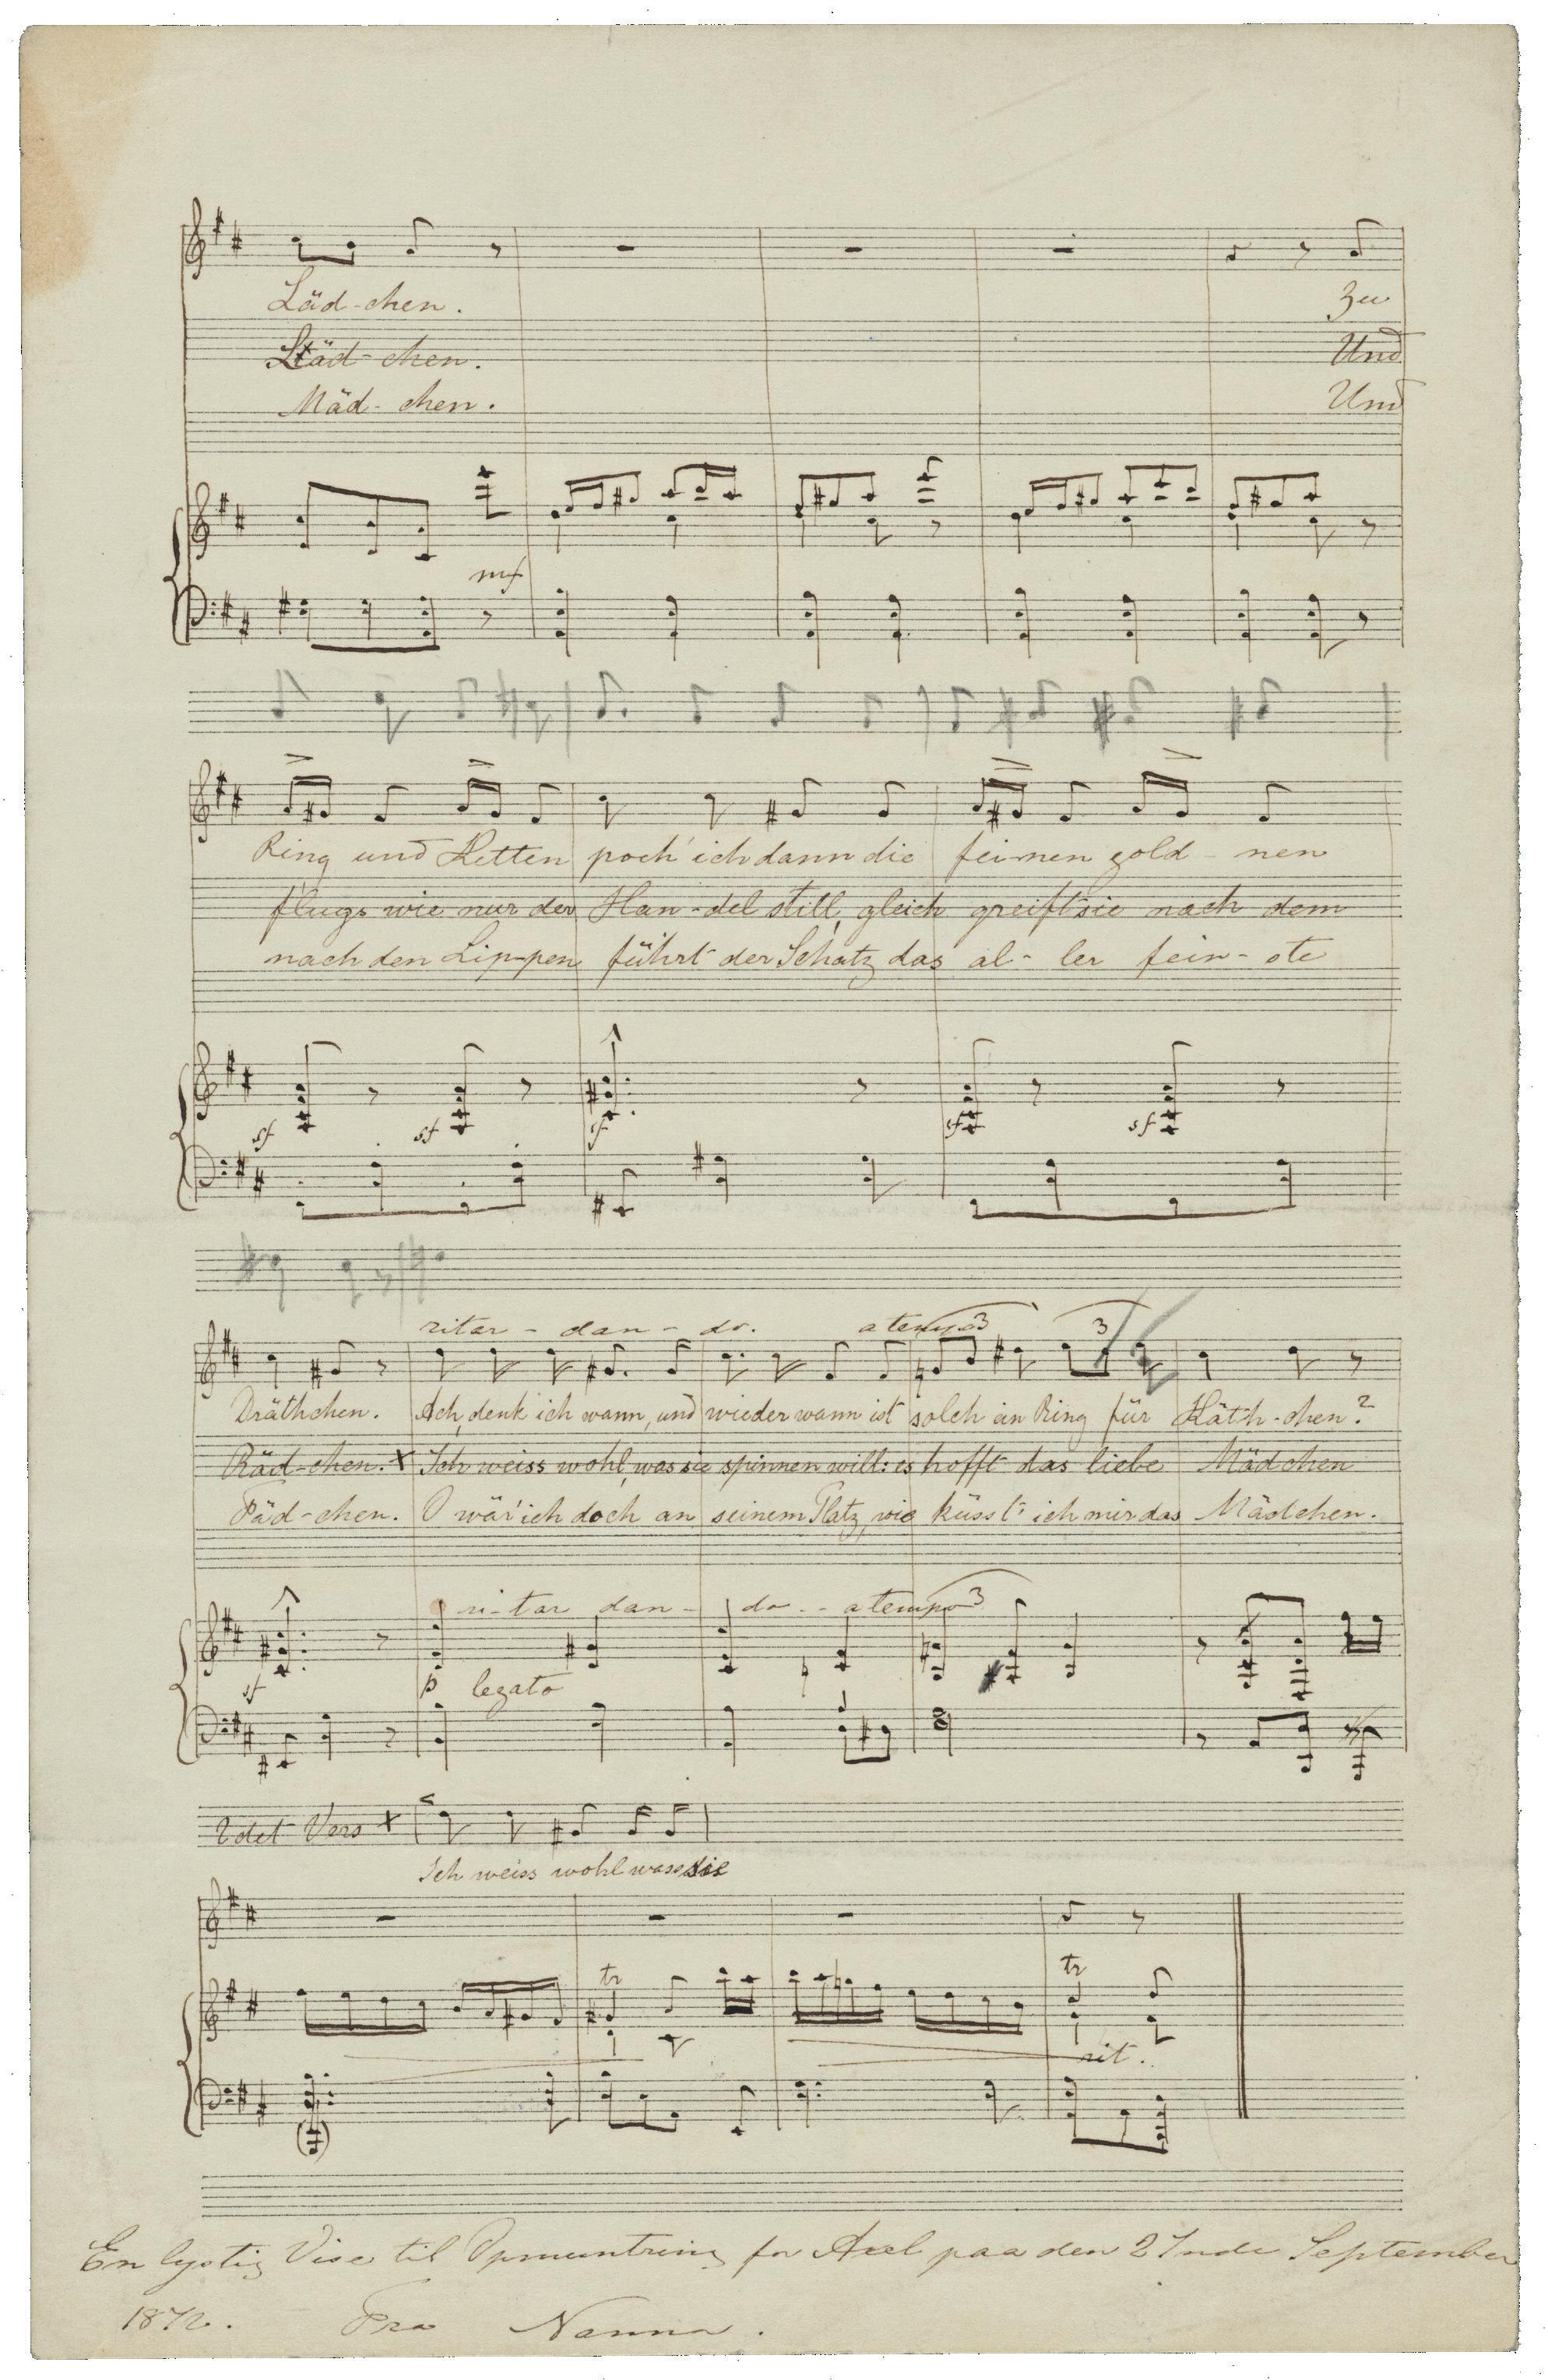 Läd-chen. Zu
Städ-chen. Und
Mäd-chen. Und
mf
Ring und Ketten poch' ich dann die feinen gold-nen
flugs wie nur der Han-del still, gleich greift sie nach dem
nach den Lip-pen führt der Schatz das al-ler fein-ste
sf sf sf sf sf
ritar-dan-do. a tempo 3 3
Dräthchen. Ach, denk ich wann, und wieder wann ist solch ein Ring für Käth-chen?
Räd-chen. x Ich weiss wohl, was sie spinnen will: es hofft das liebe Mädchen
Fäd-chen. O wär' ich doch an seinem Platz, wie küsst' ich mir das Mädchen.
ri-tar dan-do-- a tempo 3
sf p legato
2det Vers x
Ich weiss wohl was sie
tr tr
rit.
En lystig Vise til Opmuntring for Axel paa den September
1872. Fra Nanna.